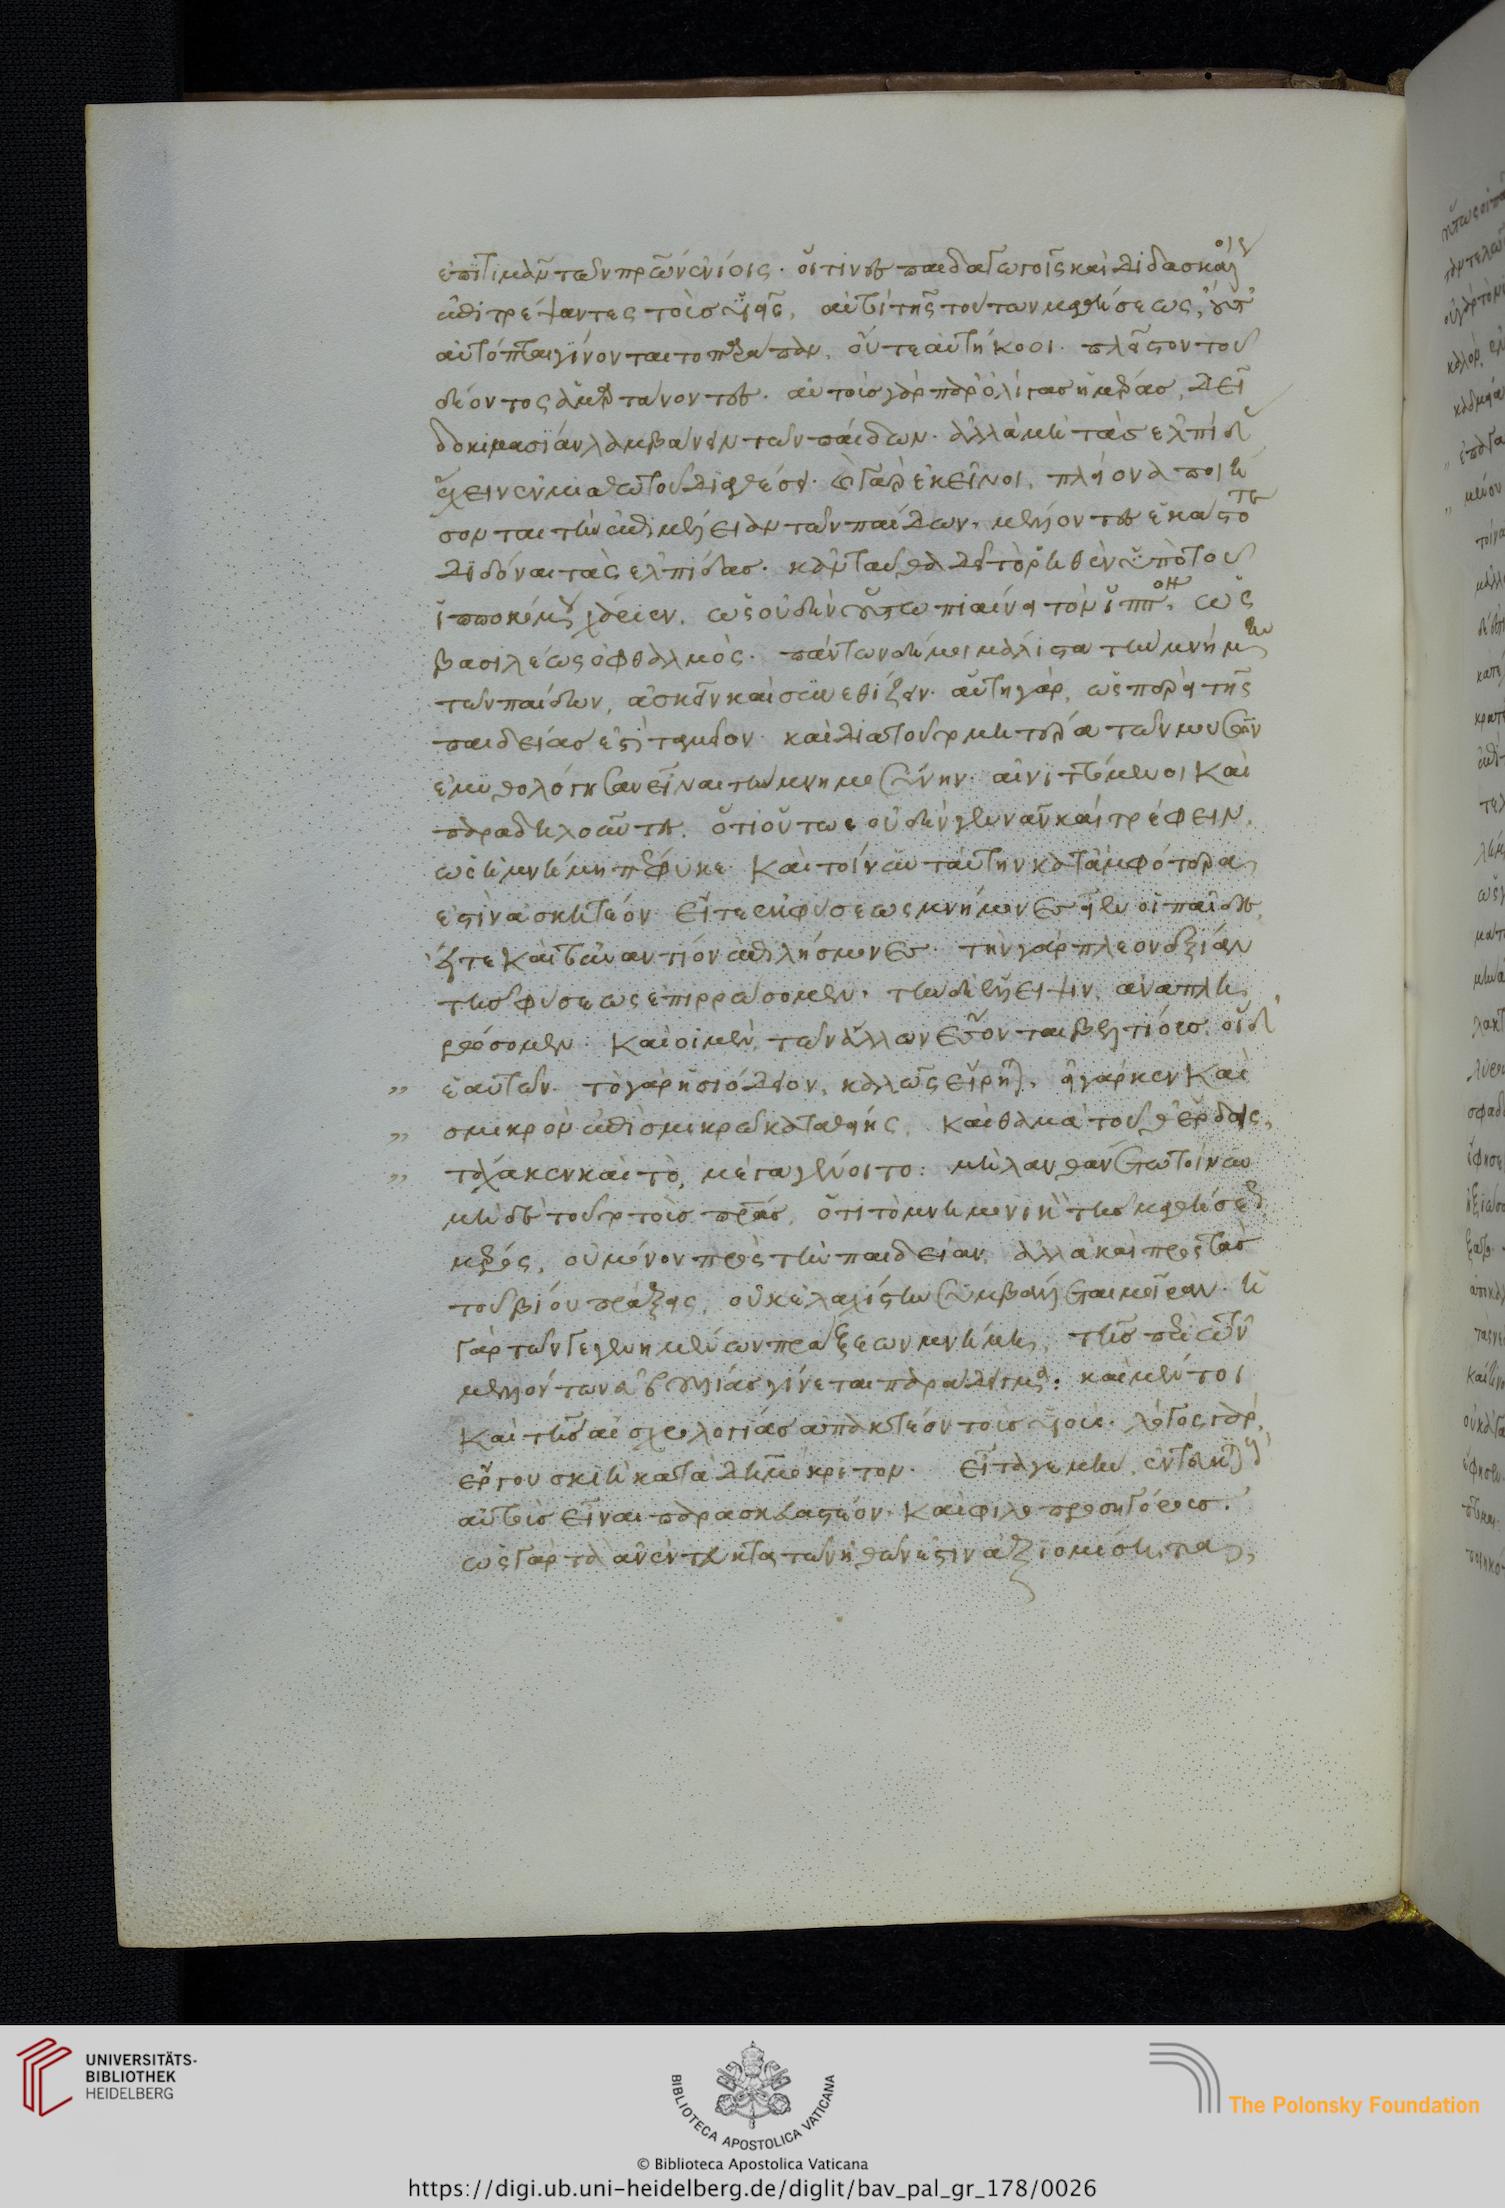 ἐπιτιμᾶν τῶν πρων ἐνίοις. οἵτινες παιδαγωγοῖς καὶ διδασκάλοις
ἐπιτρέψαντες τοὺς υἱεῖς, αὐτοὶ τῆς τούτων μαθήσεως, οὔτ'
αὐτόπται γίνονται τοπαράπαν, οὔτε αὐτήκοοι. πλεῖστον τοῦ
δέοντος ἁμαρτάνοντες. αὐτοὺς γὰρ παρ' ὀλίγας ἡμέρας, δεῖ
δοκιμασίαν λαμβάνειν τῶν παίδων. ἀλλὰ μὴ τὰς ἐλπίδας
ἔχειν ἐν μισθωτοῦ διαθέσει. καὶ γὰρ ἐκεῖνοι, πλείονα ποιή
σονται τὴν ἐπιμέλειαν τῶν παίδων, μέλλοντες ἑκάστοτε
διδόναι τὰς ἐλπίδας. κἀνταῦθα δὲ τὸ ῥηθὲν ὑπὸ τοῦ
ἱπποκόμου χάριεν. ὡς οὐδὲν οὕτω πιαίνει τὸν ἵππον, ὡς
βασιλέως ὀφθαλμός. πάντων δέ μοι μάλιστα τὴν μνήμην
τῶν παίδων, ἀσκεῖν καὶ συνεθίζειν. αὕτη γάρ, ὥσπερ τῆς
παιδείας ἐστὶ ταμεῖον. καὶ διὰ τοῦτο μητέρα τῶν μουσῶν
ἐμυθολόγησαν εἶναι τὴν μνημοσύνην. αἰνιττόμενοι καὶ
παραδηλοῦντες. ὅτι οὕτως οὐδὲν γεννᾶν καὶ τρέφειν,
ὡς ἡ μνήμη πέφυκε. Καὶ τοίνυν ταύτην κατ' ἀμφότερα
ἐστὶν ἀσκητέον. εἴτε ἐκ φύσεως μνήμονες εἶεν οἱ παῖδες,
εἴτε καὶ τοὐναντίον ἐπιλήσμονες. τὴν γὰρ πλεονεξίαν
τῆς φύσεως ἐπιρρώσομεν. τὴν δὲ ἔλλειψιν, ἀναπλη
ρώσομεν. Καὶ οἱ μὲν, τῶν ἄλλων ἔσονται βελτίους. οἱ δ'
ἑαυτῶν. τὸ γὰρ ἡσιόδειον, καλῶς εἴρηται. εἰ γάρ κεν καὶ
σμικρὸν ἐπὶ σμικρῷ καταθεῖς. καὶ θαμὰ τοῦθ' ἔρδοις,
τάχα κεν καὶ τὸ, μέγα γένοιτο: μὴ λανθανέτω τοίνυν
μηδὲ τοῦτο τοὺς πρας, ὅτι τὸ μνημονικὸν τῆς μαθήσεως
μέρος, οὐ μόνον πρὸς τὴν παιδείαν, ἀλλὰ καὶ πρὸς τὰς
τοῦ βίου πράξεις, οὐκ ἐλαχίστην συμβάλλεται μοῖραν. ἡ
γὰρ τῶν γεγενημένων πράξεων μνήμη, τῆς περὶ τῶν
μελλόντων εὐβουλίας γίνεται παράδειγμα: καὶ μέντοι
Καὶ τῆς αἰσχρολογίας ἀπακτέον τοὺς υἱούς. λόγος γὰρ,
ἔργου σκιὴ κατὰ Δημόκριτον. εἶτά γε μὴν, ἐντευκτικοὺς
αὐτοὺς εἶναι παρασκευαστέον. Καὶ φιλοπροσηγόρους.
ὡς γὰρ τὰ ἀνέντευκτα τῶν ἠθῶν ἐστὶν ἀξιομίσητα,
UNIVERSITÄTS-
BIBLIOTHEK
HEIDELBERG
BIBLIOTECA APOSTOLICA VATICANA
The Polonsky Foundation
© Biblioteca Apostolica Vaticana
https://digi.ub.uni-heidelberg.de/diglit/bav_pal_gr_178/0026